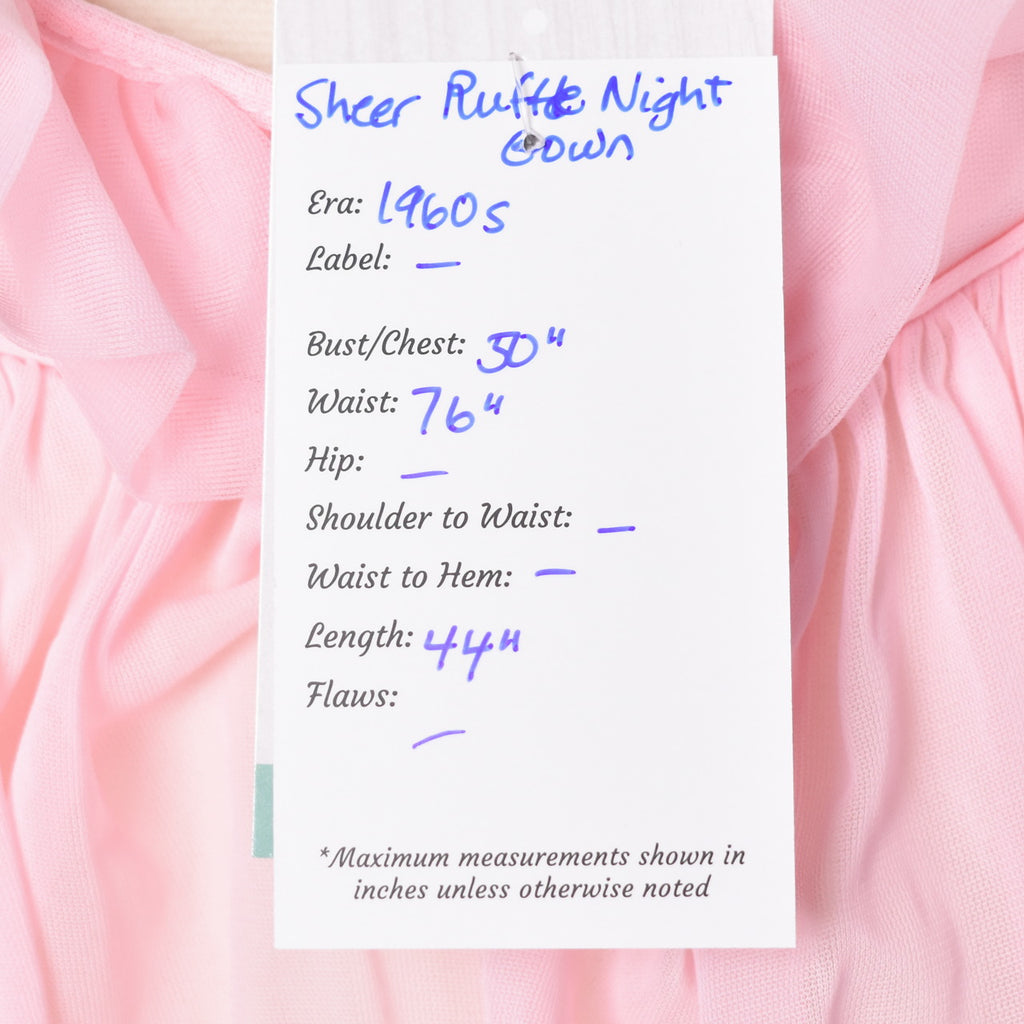 Sheer Ruffle Night
Gown
Era: 1960s
Label: —
Bust/Chest: 50"
Waist: 76"
Hip: —
Shoulder to Waist: —
Waist to Hem: —
Length: 44"
Flaws:
—
*Maximum measurements shown in
inches unless otherwise noted